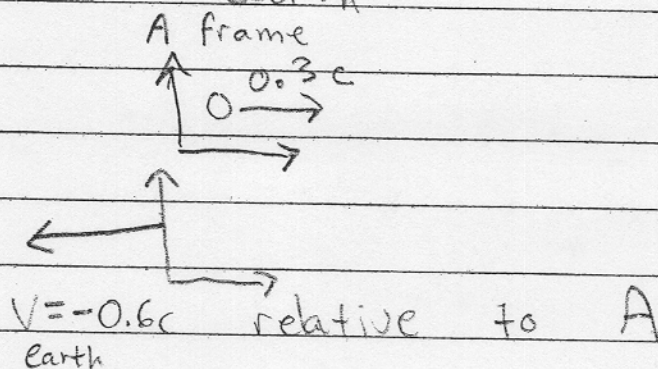 A frame
0.3 c
V=-0.6c relative to A
earth